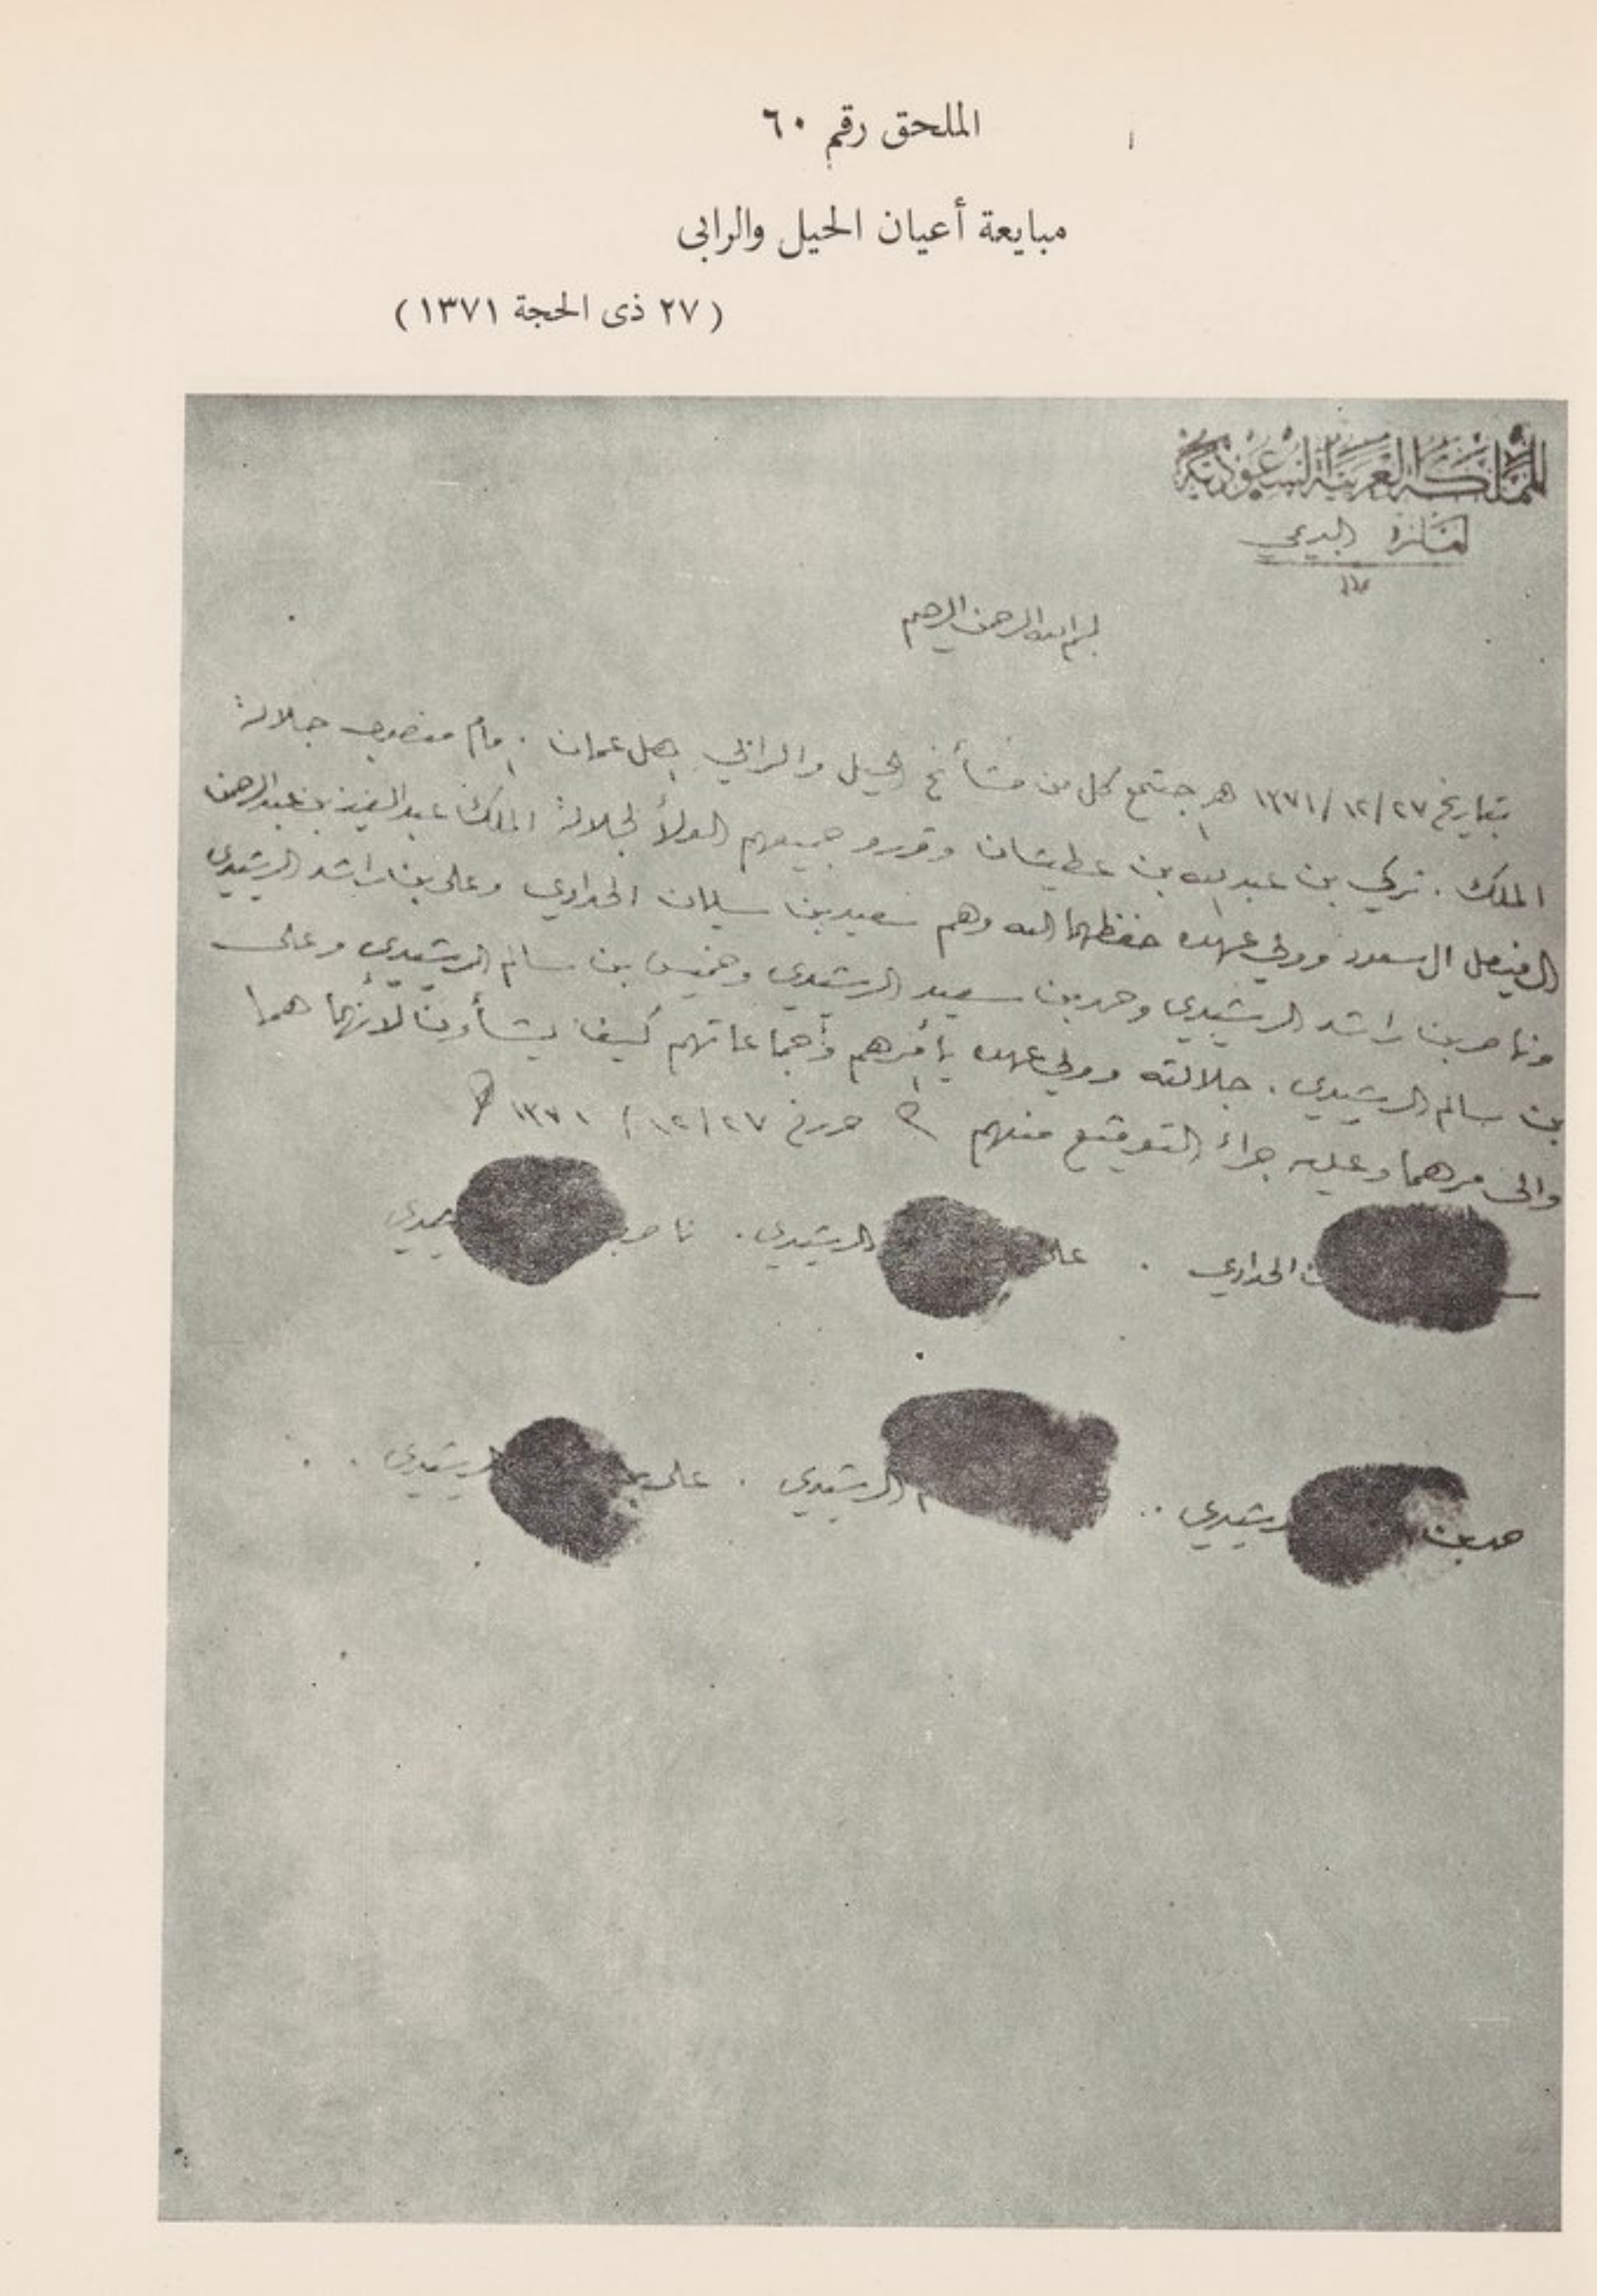 الملحق رقم ٦٠
مبايعة أعيان الحيل والرابى
(٢٧ ذى الحجة ١٣٧١)
المملكة العربية السعودية
بسم الله الرحمن الرحيم
بتاريخ ٢٧/١٢/١٣٧١ هـ اجتمع كل من مشائخ الحيل والرابي اهل عمان . امام مندوب جلالة
الملك . تركي بن عبدالله بن عطيشان وقررو جميعهم الولأ لجلالة الملك عبد العزيز بن عبد الرحمن
ال فيصل ال سعود وولي عهده حفظهما الله وهم سعيد بن سليمان الحداوي وعلى بن راشد الرشيدي
وناصر بن راشد الرشيدي وحمد بن سعيد الرشيدي وخميس بن سالم الرشيدي وعلى
بن سالم الرشيدي . جلالته وولي عهده يأمرهم وجماعاتهم كيف يشأون لأنهما هما
والى مرهما وعليه جراء التوقيع منهم حرر في ٢٧/١٢/١٣٧١
الحداوي . على الرشيدي . ناصر
حمد بن رشيدي .. الرشيدي . على بن الرشيدي . .